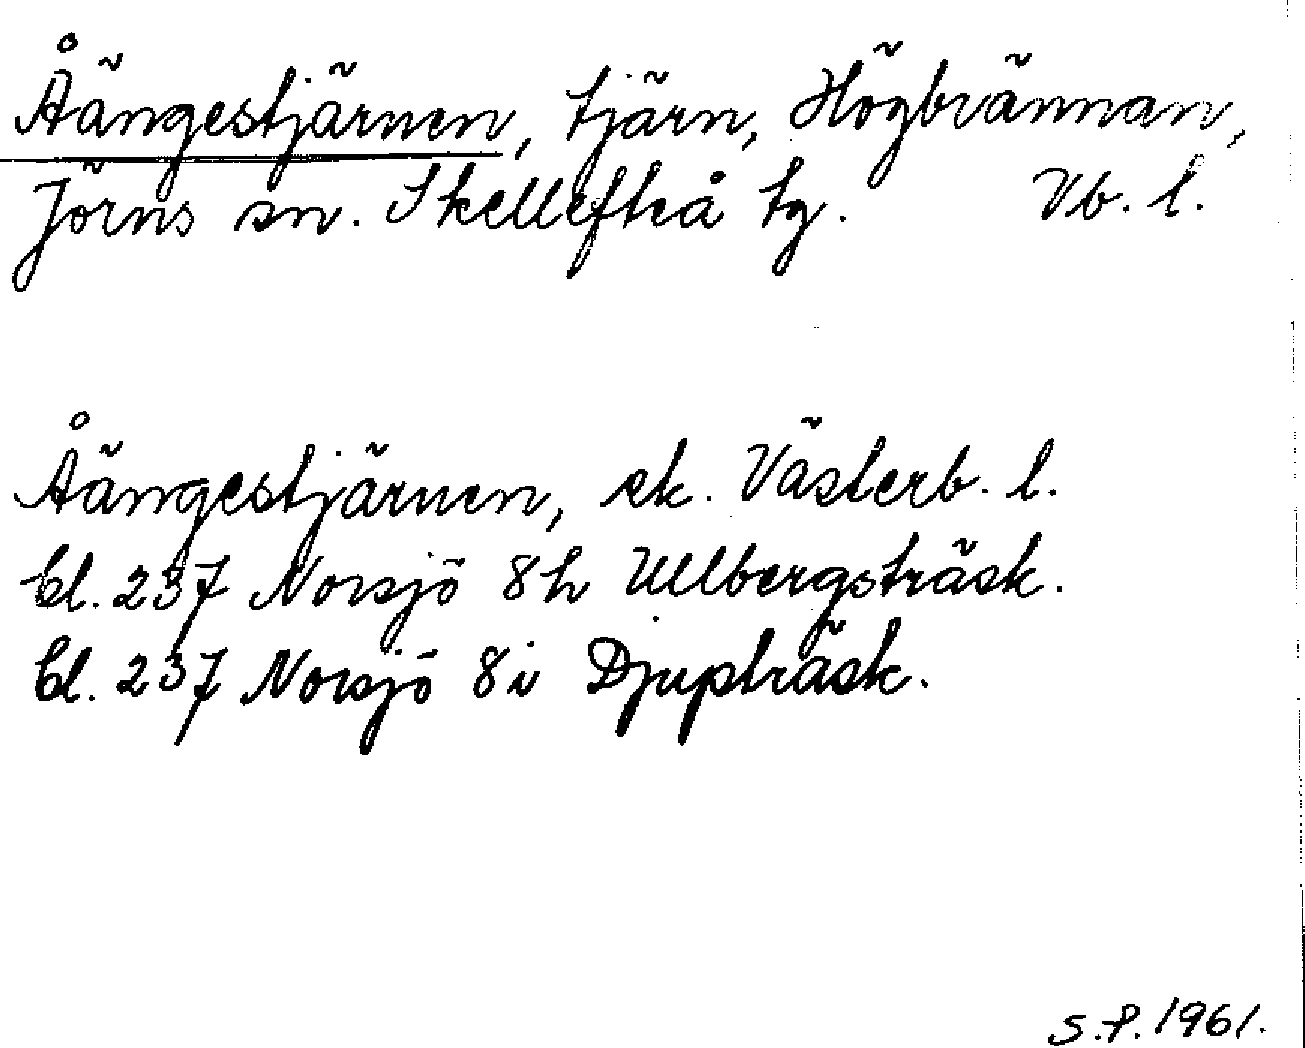 Åängestjärnen, tjärn, Högbrännan,
Jörns sn. Skellefteå tg. Vb. l.
Åängestjärnen, ek. Västerb. l.
bl. 237 Norsjö 8h Ullbergsträsk.
bl. 237 Norsjö 8i Djupträsk.
S.P. 1961.